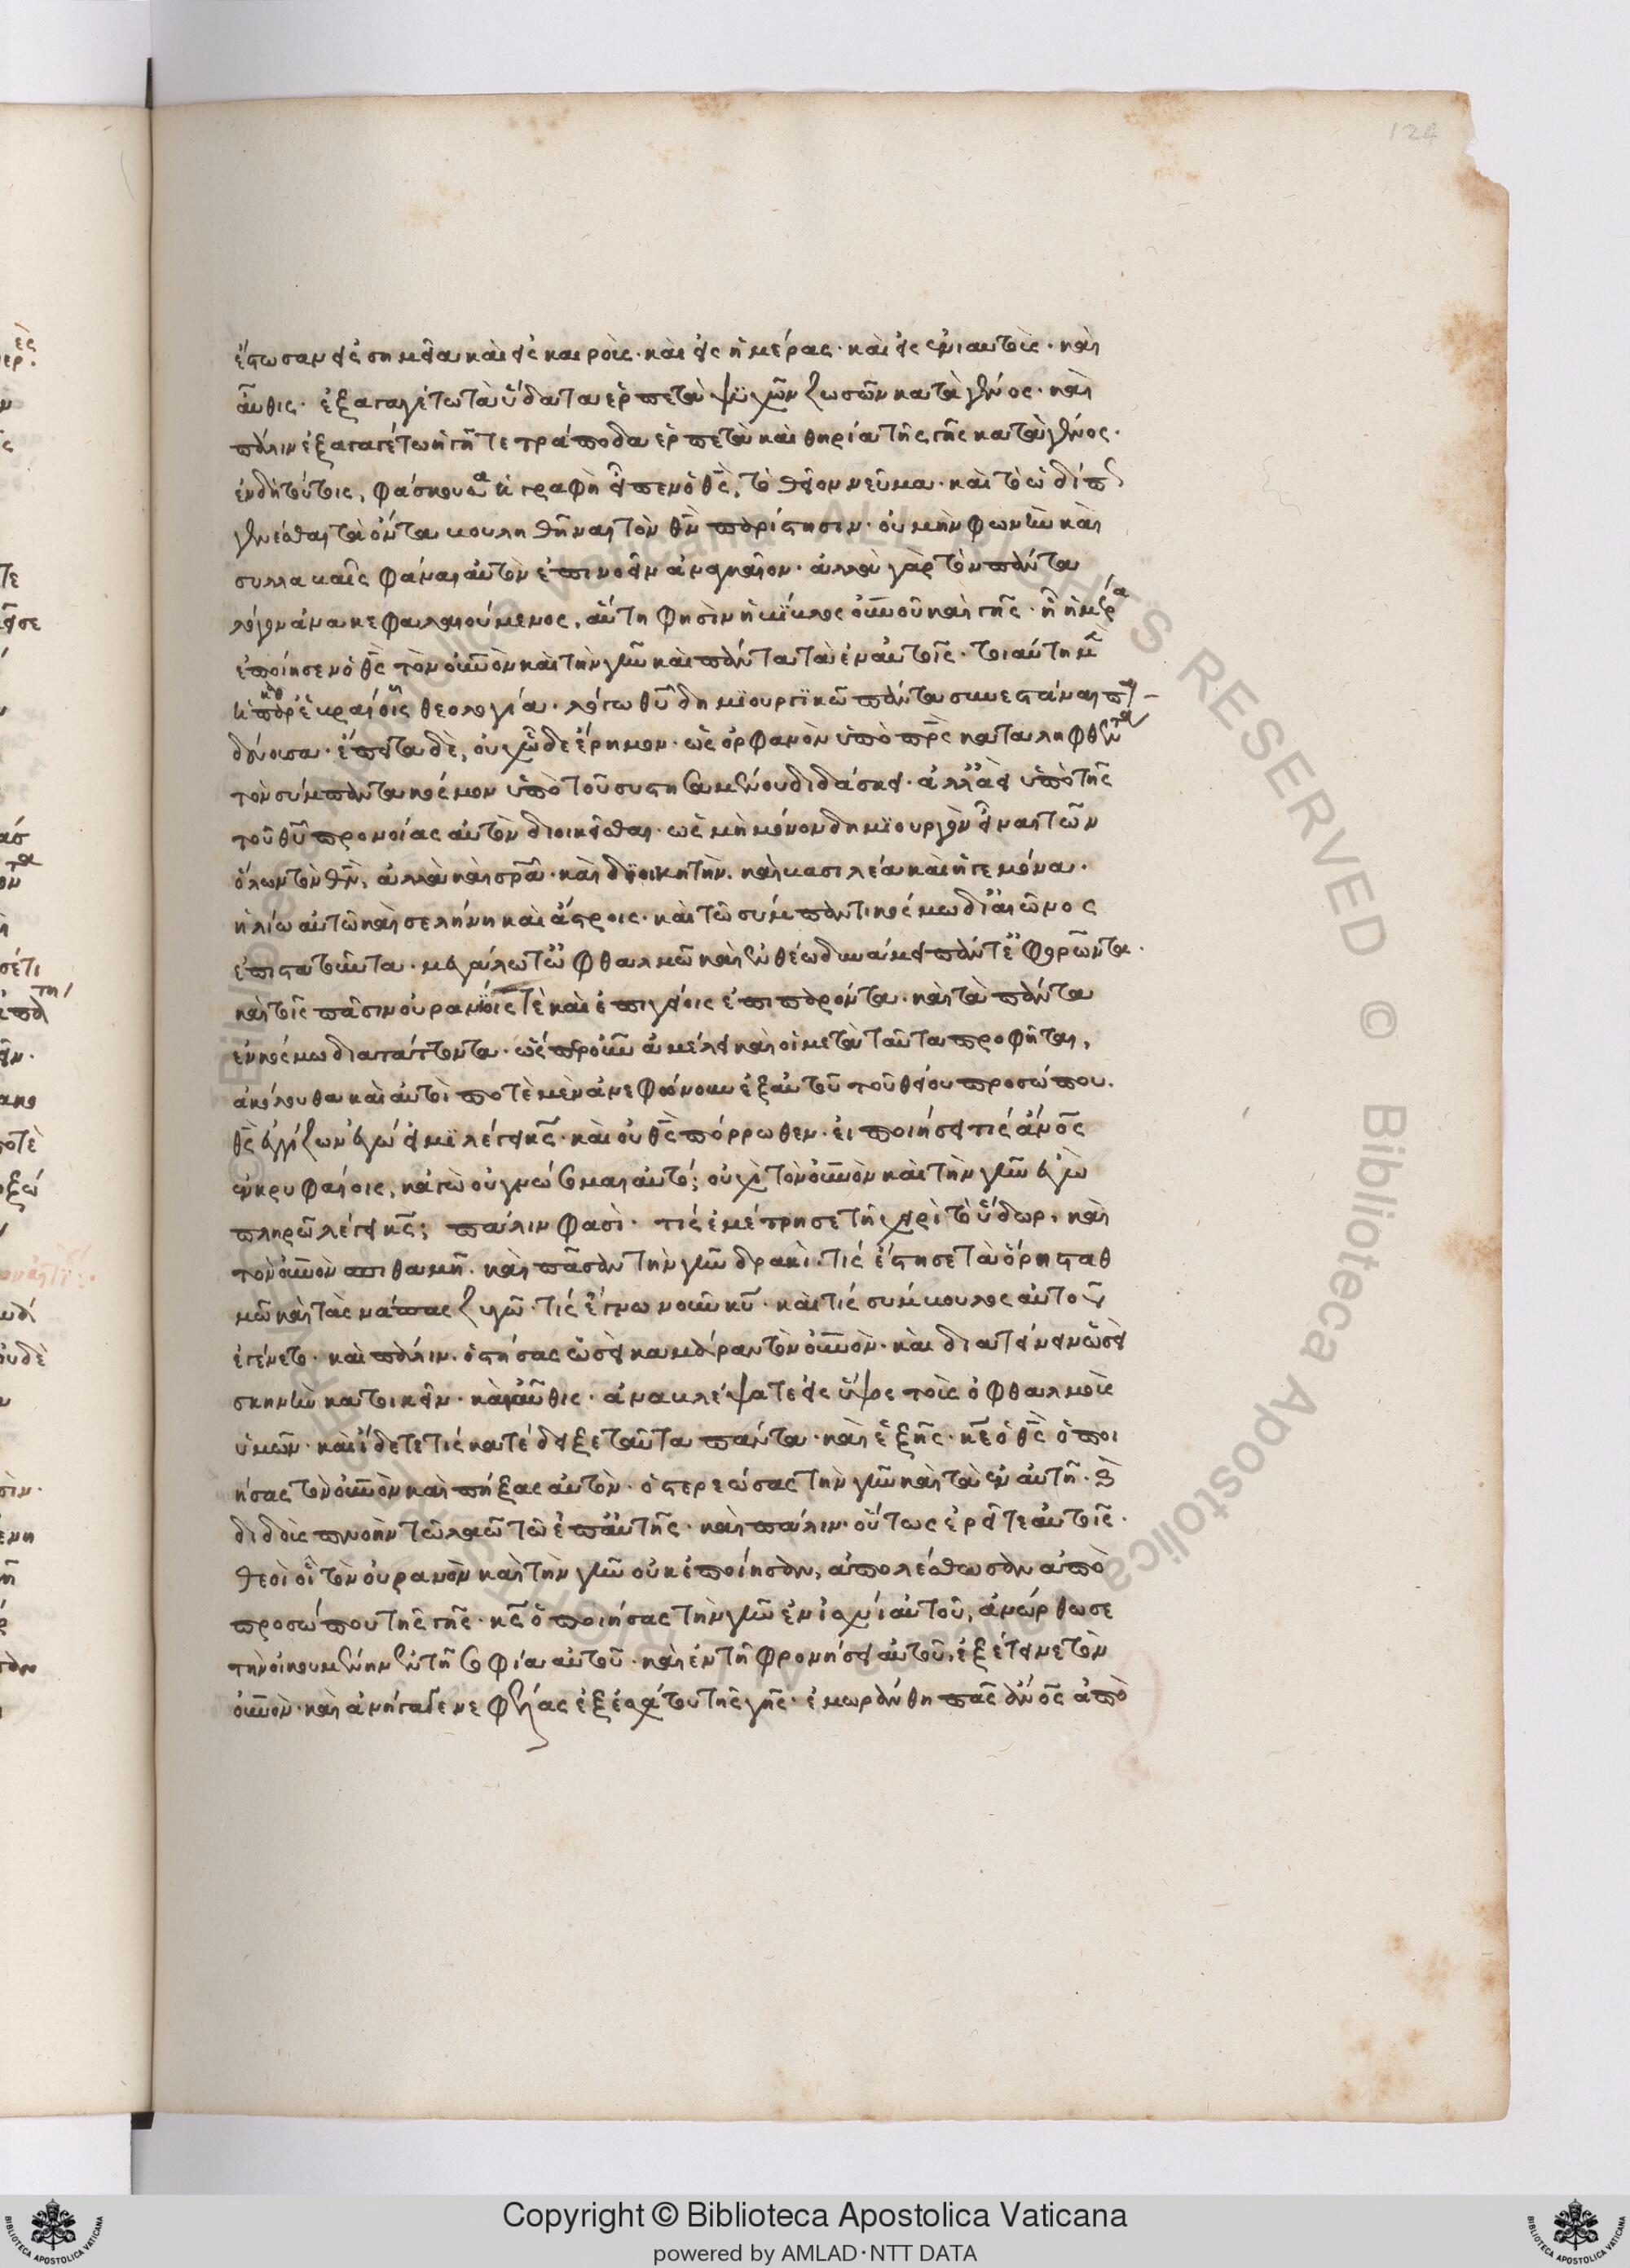 124
ἔστωσαν εἰς σημεῖα καὶ εἰς καιροὺς· καὶ εἰς ἡμέρας· καὶ εἰς ἐνιαυτοὺς· καὶ
αὖθις· ἐξαγαγέτω τὰ ὕδατα ἑρπετὰ ψυχῶν ζωσῶν κατὰ γένος· καὶ
πάλιν ἐξαγαγέτω ἡ γῆ τετράποδα ἑρπετὰ καὶ θηρία τῆς γῆς κατὰ γένος·
ἐν δὴ τούτοις, φάσκουσα ἡ γραφὴ εἶπεν ὁ θς, τὸ θεῖον νεῦμα· καὶ τὸ
γενέσθαι τὰ ὄντα βουληθῆναι τὸν θν παρίστησιν· οὐ μὴν φωνῆ καὶ
συλλαβαῖς φάναι αὐτὸν ἐπινοεῖν ἀναγκαῖον· ἀλλὰ γὰρ τὸν πάντα
λόγον ἀνακεφαλαιούμενος, αὕτη φησὶν ἡ βίβλος οὐνοῦ καὶ γῆς· ᾗ ἡμέρα
ἐποίησεν ὁ θς τὸν οὐνὸν καὶ τὴν γῆν καὶ πάντα τὰ ἐν αὐτοῖς· τοιαύτη μὲν
ἡ παρ' ἑβραίοις θεολογία· λόγω θυ δημιουργικῶ πάντα συνεστάναι
ἔπειτα δὲ, οὐχ ὧδε ἔρημον· ὡς ὀρφανὸν ὑπὸ πρς καταληφθέντα
τὸν σύμπαντα κόσμον ὑπὸ τοῦ συστησαμένου διδάσκει· ἀλλ' ἀεὶ ὑπὸ τῆς
τοῦ θυ προνοίας αὐτὸν διοικεῖσθαι· ὡς μὴ μόνον δημιουργὸν εἶναι τῶν
ὅλων τὸν θν, ἀλλὰ καὶ σρα· καὶ διοικητὴν· καὶ βασιλέα καὶ ἡγεμόνα·
ἡλίω αὐτῶ καὶ σελήνη καὶ ἄστροις· καὶ τῶ σύμπαντι κόσμω δι' αἰῶνος
ἐπιστατοῦντα· μεγάλω τῶ ὀφθαλμῶ καὶ ἐνθέω δυνάμει πάντ' ἐφορῶντα·
καὶ τοῖς πᾶσιν οὐρανίοις τὲ καὶ ἐπιγείοις ἐπιπαρόντα· καὶ τὰ πάντα
ἐν κόσμω διατάττοντα· ὡς ἀμέλει καὶ οἱ μετὰ ταῦτα προφῆται,
ἀκόλουθα καὶ αὐτοὶ ποτὲ μὲν ἀνεφώνουν ἐξ αὐτοῦ τοῦ θείου προσώπου·
θς ἐγγίζων ἐγώ εἰμι λέγει κς· καὶ οὐ θς πόρρωθεν· εἰ ποιήσει τίς ἄνος
ἐν κρυφαίοις, κἀγὼ οὐ γνώσομαι αὐτό; οὐχὶ τὸν οὐνὸν καὶ τὴν γῆν ἐγὼ
πληρῶ λέγει κς; πάλιν φασὶ· τίς ἐμέτρησε τῆ χειρὶ τὸ ὕδωρ, καὶ
τὸν οὐνὸν σπιθαμῆ· καὶ πᾶσαν τὴν γῆν δρακὶ· τίς ἔστησε τὰ ὄρη σταθ
μῶ καὶ τὰς νάπας ζυγῶ· τίς ἔγνω νοῦν κυ· καὶ τίς σύμβουλος αὐτοῦ
ἐγένετο· καὶ πάλιν· ὁ στήσας ὡσεὶ καμάραν τὸν οὐνὸν· καὶ διατείνειν ὡσεὶ
σκηνὴν κατοικεῖν· καὶ αὖθις· ἀναβλέψατε εἰς ὕψος τοῖς ὀφθαλμοῖς
ὑμῶν· καὶ ἴδετε τίς κατέδειξε ταῦτα πάντα· καὶ ἑξῆς· κς ὁ θς ὁ ποι
ήσας τὸν οὐνὸν καὶ πήξας αὐτὸν· ὁ στερεώσας τὴν γῆν καὶ τὰ ἐν αὐτῆ· καὶ
διδοὺς πνοὴν τῶ λαῶ τῶ ἐπ' αὐτῆς· καὶ πάλιν· οὕτως ἐρεῖτε αὐτοῖς·
θεοὶ οἳ τὸν οὐρανὸν καὶ τὴν γῆν οὐκ ἐποίησαν, ἀπολέσθωσαν ἀπὸ
προσώπου τῆς γῆς· κς ὁ ποιήσας τὴν γῆν ἐν ἰσχύι αὐτοῦ, ἀνώρθωσε
τὴν οἰκουμένην ἐν τῆ σοφία αὐτοῦ· καὶ ἐν τῆ φρονήσει αὐτοῦ, ἐξέτεινε τὸν
οὐνὸν· καὶ ἀνήγαγε νεφέλας ἐξ ἐσχάτου τῆς γῆς· ἐμωράνθη πᾶς ἄνος ἀπὸ
Copyright © Biblioteca Apostolica Vaticana
powered by AMLAD·NTT DATA